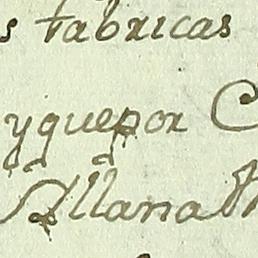 s fabricas
yquepor C
Allana